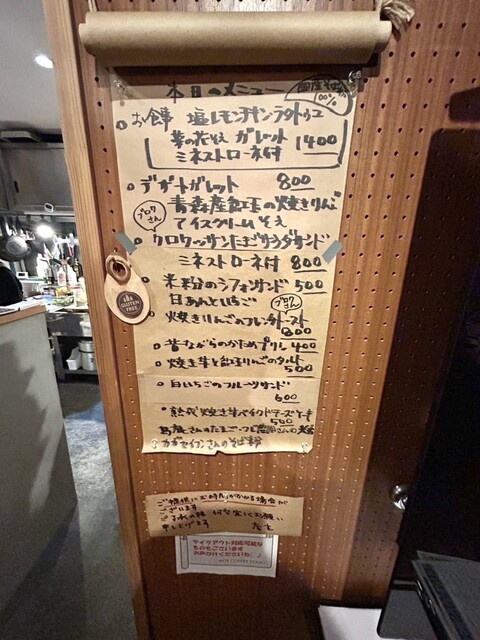 本日のメニュー
国産そば粉
100%
お食事 塩レモンチキンラタトゥユ
菜の花そえ ガレット 1400
ミネストローネ付
デザートガレット 800
青森産紅玉の焼きりんご
アイスクリームそえ
ブロワさん
クロワッサンたまごサラダサンド
ミネストローネ付 800
米粉のシフォンサンド 500
白あんといちご
焼きりんごのフレンチトースト
800
昔ながらのかためプリン 400
焼き芋と紅玉りんごのタルト
500
白いちごのフルーツサンド
600
熟成焼き芋ベイクドチーズケーキ
500
GLUTEN FREE
ご提供にお時間がかかる場合が
ございます
ご了承の程 何卒宜しくお願い
申し上げます 店主
テイクアウト対応可能な
ものもございます
お声がけくださいね♪